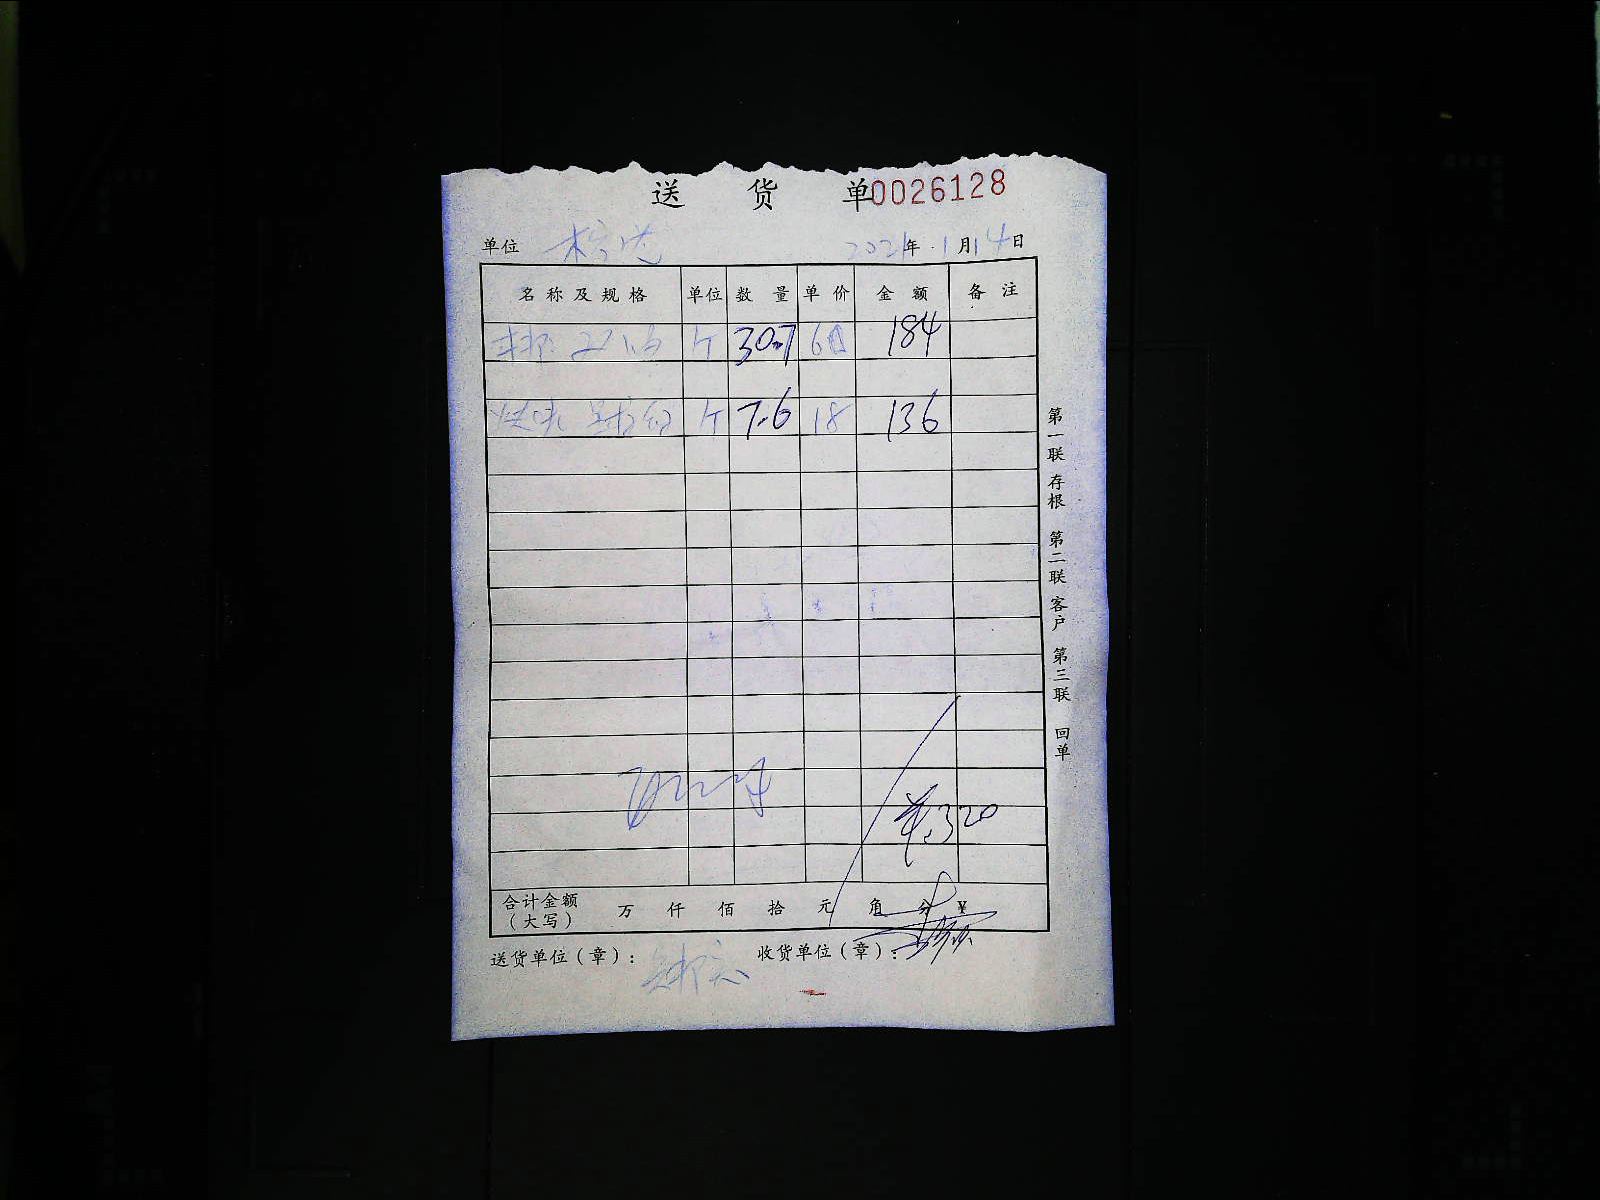 送 货 单 0026128
单位 2021年 1月14日
名称及规格 单位 数量 单价 金额 备注
个 30.7 184
个 7.6 18 136
¥320
合计金额（大写） 万 仟 佰 拾 元 角 分 ¥
送货单位（章）： 收货单位（章）：
第一联 存根 第二联 客户 第三联 回单